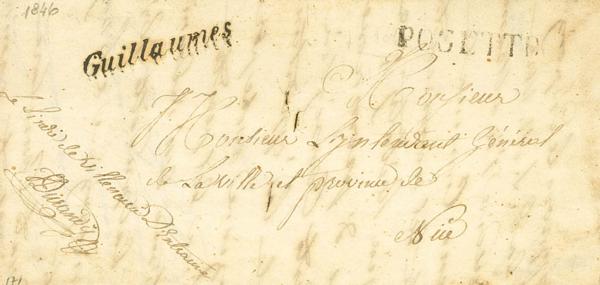 1846
Guillaumes
POGETTE
Monsieur
Monsieur L'Intendant Général
de La Ville et province de
Nice
Le Sindic de Villeneuve D'Entraunes
Durandy
171